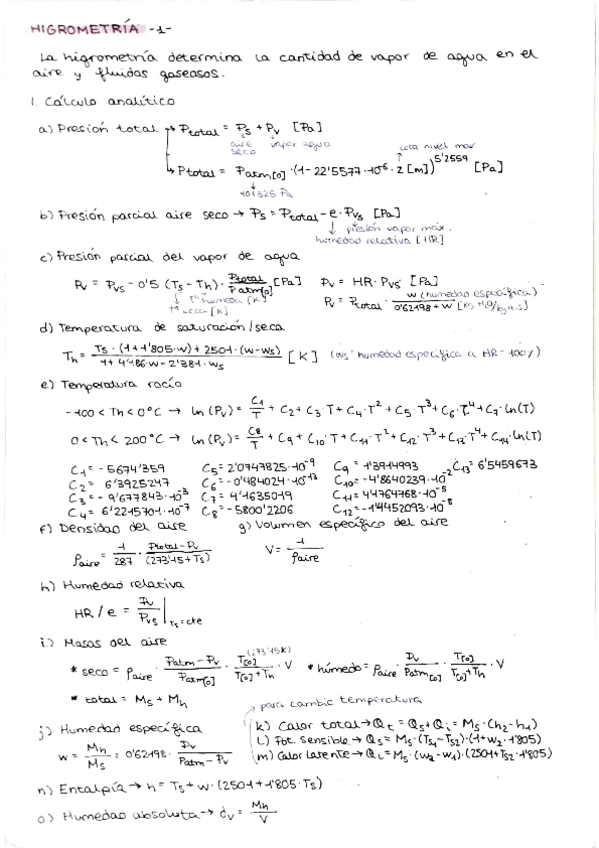 HIGROMETRÍA -1-
La higrometría determina la cantidad de vapor de agua en el
aire y fluidos gaseosos.
1. Cálculo analítico
a) Presión total → Ptotal = Ps + Pv [Pa]
aire seco vapor agua
cota nivel mar
→ Ptotal = Patm[0] · (1 - 22'5577·10⁻⁶ · z [m])^5'2559 [Pa]
101325 Pa
b) Presión parcial aire seco → Ps = Ptotal - e · Pvs [Pa]
presión vapor máx.
humedad relativa [HR]
c) Presión parcial del vapor de agua
Pv = Pvs - 0'5 (Ts - Th) · Ptotal/Patm[0] [Pa] Pv = HR · Pvs [Pa]
Tª húmeda [K]
Tª seca [K]
Pv = Ptotal · w (humedad específica)/0'62198 + w [kg H₂O/kg a.s]
d) Temperatura de saturación/seca
Th = Ts · (1 + 1'805·w) + 2501 · (w - ws)/1 + 4'186·w - 2'381·ws [K] (ws: humedad específica a HR = 100%)
e) Temperatura rocío
-100 < Th < 0°C → ln (Pv) = C1/T + C2 + C3·T + C4·T² + C5·T³ + C6·T⁴ + C7·ln(T)
0 < Th < 200°C → ln (Pv) = C8/T + C9 + C10·T + C11·T² + C12·T³ + C13·T⁴ + C14·ln(T)
C1 = -5674'359 C5 = 2'0747825·10⁻⁹ C9 = 1'3914993 C13 = 6'5459673
C2 = 6'3925247 C6 = -0'484024·10⁻¹³ C10 = -4'8640239·10⁻²
C3 = -9'677843·10⁻³ C7 = 4'1635019 C11 = 4'4764768·10⁻⁵
C4 = 6'2215701·10⁻⁷ C8 = -5800'2206 C12 = -1'4452093·10⁻⁸
f) Densidad del aire g) Volumen específico del aire
ρaire = 1/287 · Ptotal - Pv/(273'15 + Ts) V = 1/ρaire
h) Humedad relativa
HR / e = Pv/Pvs | Ts = cte
i) Masas del aire
(273'15K)
* seco = ρaire · Patm - Pv/Patm[0] · T[0]/T[0] + Th · V * húmedo = ρaire · Pv/Patm[0] · T[0]/T[0] + Th · V
* total = Ms + Mh
para cambio temperatura
j) Humedad específica
w = Mh/Ms = 0'62198 · Pv/Patm - Pv
k) Calor total → Qt = Qs + Ql = Ms · (h2 - h1)
l) Pot. sensible → Qs = Ms · (Ts1 - Ts2) · (1 + w2 · 1'805)
m) Calor latente → QL = Ms · (w2 - w1) · (2501 + Ts2 · 1'805)
n) Entalpía → h = Ts + w · (2501 + 1'805 · Ts)
o) Humedad absoluta → dv = Mh/V